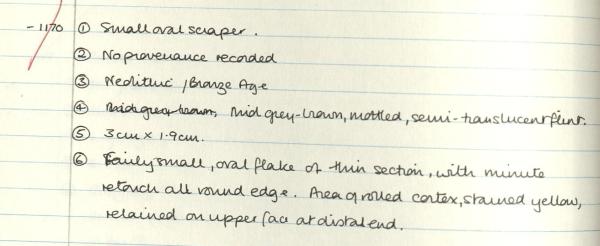 -1170 ① Small oval scraper.
② No provenance recorded
③ Neolithic / Bronze Age
④ Mid grey-brown, mottled, semi-translucent flint.
⑤ 3cm x 1.9cm.
⑥ Fairly small, oval flake of thin section, with minute
retouch all round edge. Area of rolled cortex, stained yellow,
retained on upper face at distal end.